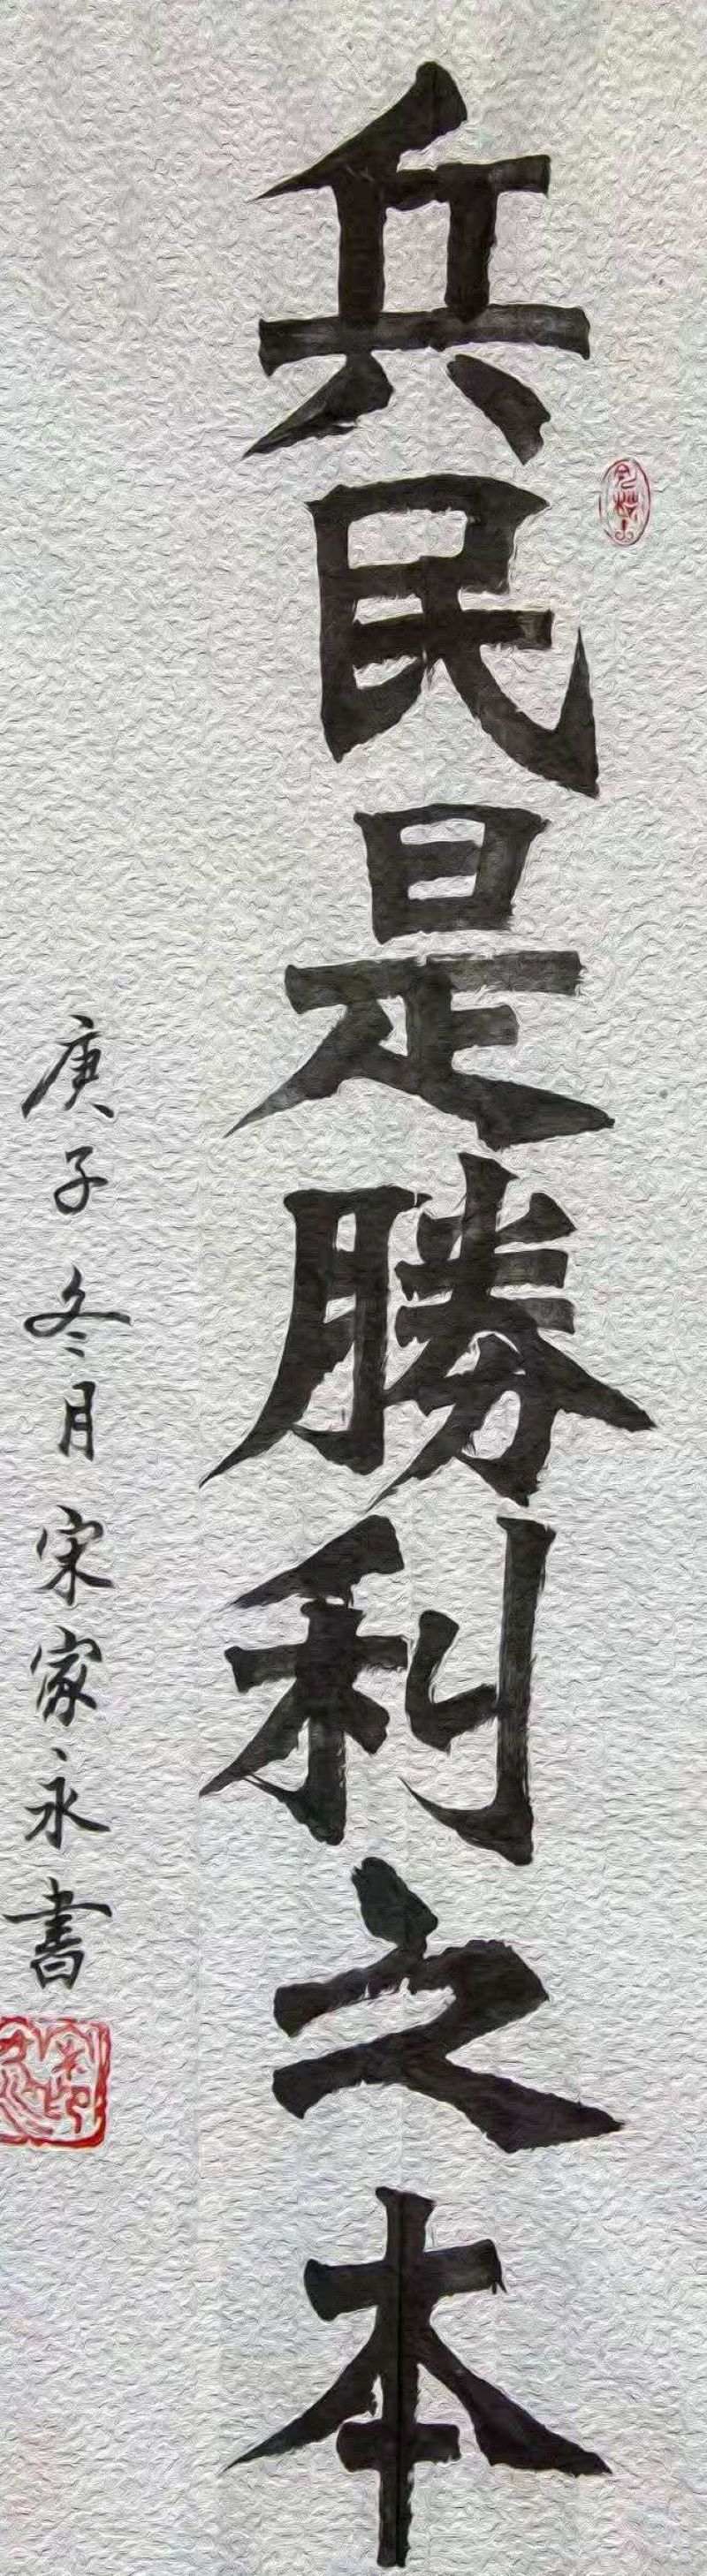 兵民是勝利之本
庚子冬月宋家永書